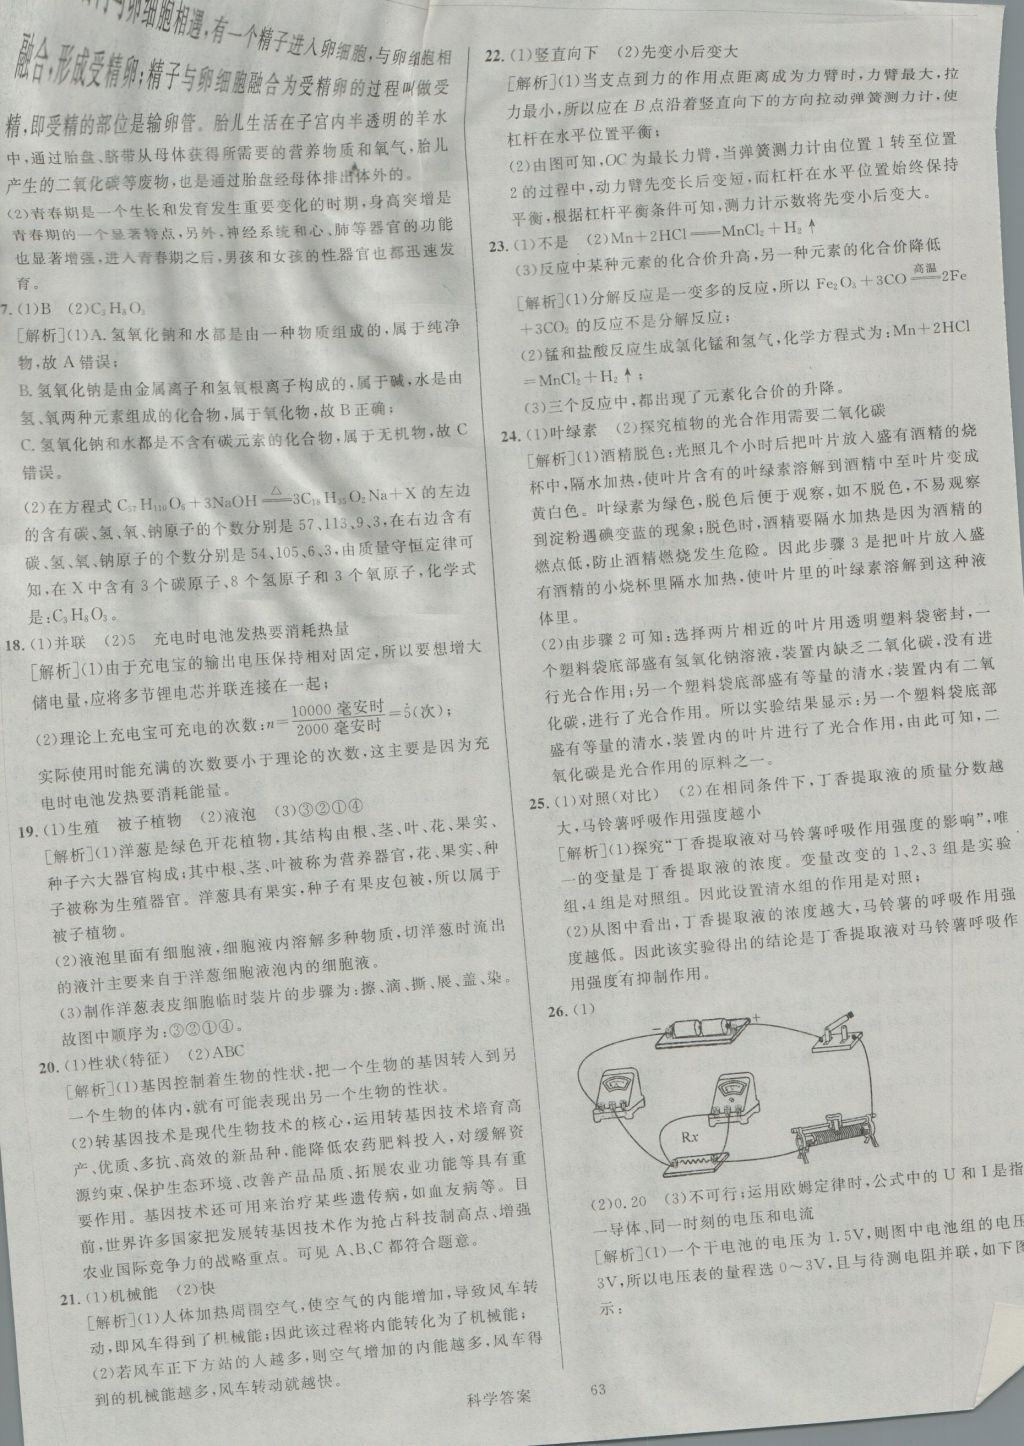 与卵细胞相遇,有一个精子进入卵细胞,与卵细胞相
融合,形成受精卵;精子与卵细胞融合为受精卵的过程叫做受
精,即受精的部位是输卵管。胎儿生活在子宫内半透明的羊水
中,通过胎盘、脐带从母体获得所需要的营养物质和氧气,胎儿
产生的二氧化碳等废物,也是通过胎盘经母体排出体外的。
(2)青春期是一个生长和发育发生重要变化的时期,身高突增是
青春期的一个显著特点,另外,神经系统和心、肺等器官的功能
也显著增强,进入青春期之后,男孩和女孩的性器官也都迅速发
育。
7.(1)B (2)C₃H₈O₃
[解析](1)A.氢氧化钠和水都是由一种物质组成的,属于纯净
物,故 A 错误;
B.氢氧化钠是由金属离子和氢氧根离子构成的,属于碱,水是由
氢、氧两种元素组成的化合物,属于氧化物,故 B 正确;
C.氢氧化钠和水都是不含有碳元素的化合物,属于无机物,故 C
错误。
(2)在方程式 C₅₇H₁₁₀O₆+3NaOH══△══3C₁₈H₃₅O₂Na+X 的左边
的含有碳、氢、氧、钠原子的个数分别是 57、113、9、3,在右边含有
碳、氢、氧、钠原子的个数分别是 54、105、6、3,由质量守恒定律可
知,在 X 中含有 3 个碳原子、8 个氢原子和 3 个氧原子,化学式
是:C₃H₈O₃。
18.(1)并联 (2)5 充电时电池发热要消耗热量
[解析](1)由于充电宝的输出电压保持相对固定,所以要想增大
储电量,应将多节锂电芯并联连接在一起;
(2)理论上充电宝可充电的次数:n=10000 毫安时/2000 毫安时=5(次);
实际使用时能充满的次数要小于理论的次数,这主要是因为充
电时电池发热要消耗能量。
19.(1)生殖 被子植物 (2)液泡 (3)③②①④
[解析](1)洋葱是绿色开花植物,其结构由根、茎、叶、花、果实、
种子六大器官构成;其中根、茎、叶被称为营养器官,花、果实、种
子被称为生殖器官。洋葱具有果实,种子有果皮包被,所以属于
被子植物。
(2)液泡里面有细胞液,细胞液内溶解多种物质,切洋葱时流出
的液汁主要来自于洋葱细胞液泡内的细胞液。
(3)制作洋葱表皮细胞临时装片的步骤为:擦、滴、撕、展、盖、染。
故图中顺序为:③②①④。
20.(1)性状(特征) (2)ABC
[解析](1)基因控制着生物的性状,把一个生物的基因转入到另
一个生物的体内,就有可能表现出另一个生物的性状。
(2)转基因技术是现代生物技术的核心,运用转基因技术培育高
产、优质、多抗、高效的新品种,能降低农药肥料投入,对缓解资
源约束、保护生态环境、改善产品品质、拓展农业功能等具有重
要作用。基因技术还可用来治疗某些遗传病,如血友病等。目
前,世界许多国家把发展转基因技术作为抢占科技制高点、增强
农业国际竞争力的战略重点。可见 A、B、C 都符合题意。
21.(1)机械能 (2)快
[解析](1)人体加热周围空气,使空气的内能增加,导致风车转
动,即风车得到了机械能;因此该过程将内能转化为了机械能;
(2)若风车正下方站的人越多,则空气增加的内能越多,风车得
到的机械能越多,风车转动就越快。
22.(1)竖直向下 (2)先变小后变大
[解析](1)当支点到力的作用点距离成为力臂时,力臂最大,拉
力最小,所以应在 B 点沿着竖直向下的方向拉动弹簧测力计,使
杠杆在水平位置平衡;
(2)由图可知,OC 为最长力臂,当弹簧测力计由位置 1 转至位置
2 的过程中,动力臂先变长后变短,而杠杆在水平位置始终保持
平衡,根据杠杆平衡条件可知,测力计示数将先变小后变大。
23.(1)不是 (2)Mn+2HCl══MnCl₂+H₂↑
(3)反应中某种元素的化合价升高,另一种元素的化合价降低
[解析](1)分解反应是一变多的反应,所以 Fe₂O₃+3CO══高温══2Fe
+3CO₂ 的反应不是分解反应;
(2)锰和盐酸反应生成氯化锰和氢气,化学方程式为:Mn+2HCl
=MnCl₂+H₂↑;
(3)三个反应中,都出现了元素化合价的升降。
24.(1)叶绿素 (2)探究植物的光合作用需要二氧化碳
[解析](1)酒精脱色:光照几个小时后把叶片放入盛有酒精的烧
杯中,隔水加热,使叶片含有的叶绿素溶解到酒精中至叶片变成
黄白色。叶绿素为绿色,脱色后便于观察,如不脱色,不易观察
到淀粉遇碘变蓝的现象;脱色时,酒精要隔水加热是因为酒精的
燃点低,防止酒精燃烧发生危险。因此步骤 3 是把叶片放入盛
有酒精的小烧杯里隔水加热,使叶片里的叶绿素溶解到这种液
体里。
(2)由步骤 2 可知:选择两片相近的叶片用透明塑料袋密封,一
个塑料袋底部盛有氢氧化钠溶液,装置内缺乏二氧化碳,没有进
行光合作用;另一个塑料袋底部盛有等量的清水,装置内有二氧
化碳,进行了光合作用。所以实验结果显示:另一个塑料袋底部
盛有等量的清水,装置内的叶片进行了光合作用,由此可知,二
氧化碳是光合作用的原料之一。
25.(1)对照(对比) (2)在相同条件下,丁香提取液的质量分数越
大,马铃薯呼吸作用强度越小
[解析](1)探究“丁香提取液对马铃薯呼吸作用强度的影响”,唯
一的变量是丁香提取液的浓度。变量改变的 1、2、3 组是实验
组,4 组是对照组。因此设置清水组的作用是对照;
(2)从图中看出,丁香提取液的浓度越大,马铃薯的呼吸作用强
度越低。因此该实验得出的结论是丁香提取液对马铃薯呼吸作
用强度有抑制作用。
26.(1)
− +
Rx
(2)0.20 (3)不可行;运用欧姆定律时,公式中的 U 和 I 是指
一导体、同一时刻的电压和电流
[解析](1)一个干电池的电压为 1.5V,则图中电池组的电压
3V,所以电压表的量程选 0～3V,且与待测电阻并联,如下图
示:
科学答案 63